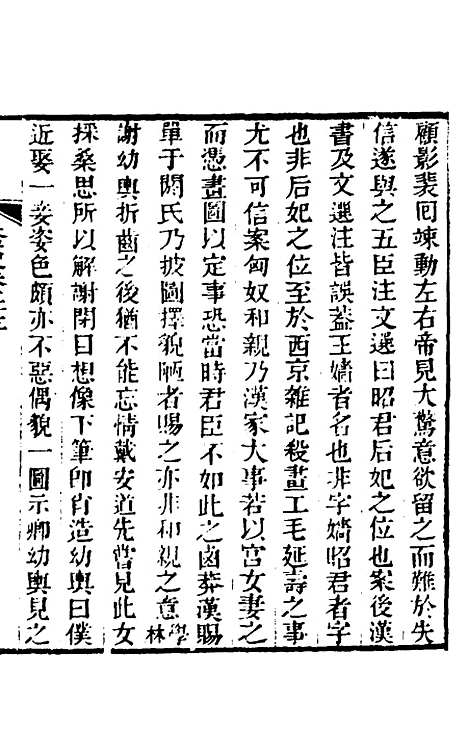 顧影裴回竦動左右帝見大驚意欲留之而難於失
信遂與之五臣注文選曰昭君后妃之位也案後漢
書及文選注皆誤蓋王嬙者名也非字嬙昭君者字
也非后妃之位至於西京雜記殺畫工毛延壽之事
尤不可信案匈奴和親乃漢家大事若以宮女妻之
而憑畫圖以定事恐當時君臣不如此之鹵莽漢賜
單于閼氏乃披圖擇貌陋者賜之亦非和親之意學林
謝幼輿折齒之後猶不能忘情戴安道先嘗見此女
採桑思所以解謝閉日想像下筆即肖造幼輿曰僕
近娶一妾姿色頗亦不惡偶貌一圖示卿幼輿見之